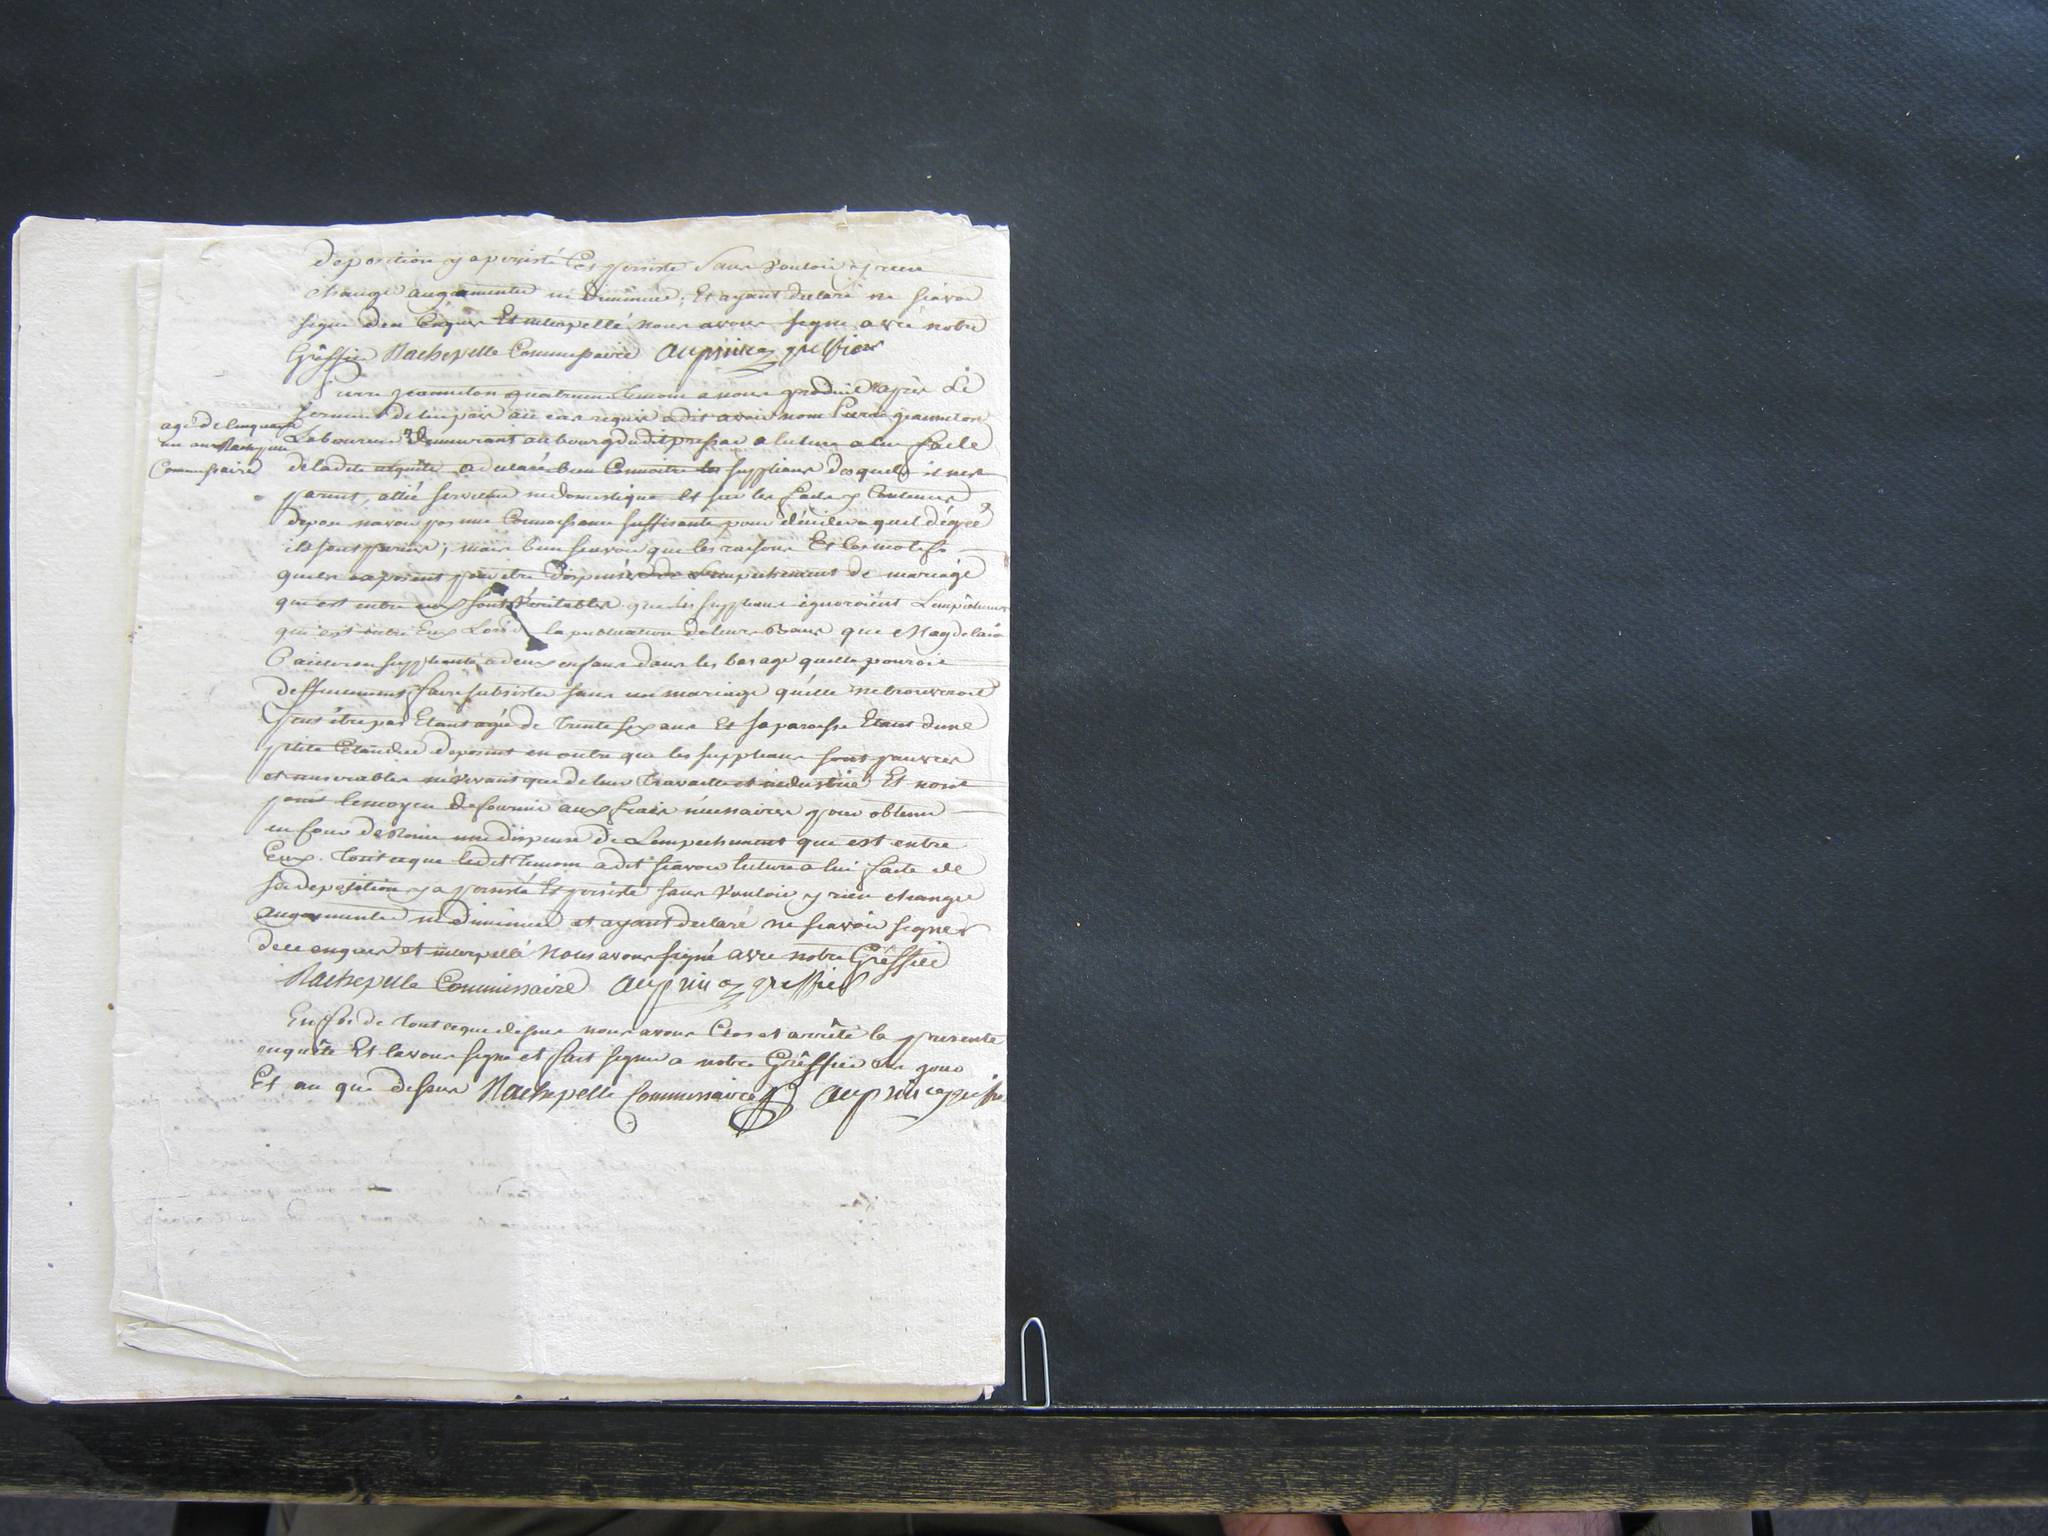 deposition y a persisté Et persiste sans vouloir y rien
changé augmenter ni diminuer, Et ayant declaré ne sçavoir
signer den Enquis Et interpellé nous avons signé avec notre
Gréffier Rachepelle Commissaire greffier
Pierre jeanneton quatrieme temoin a nous produit apres le
serment de lui pris au cas requis a dit avoir nom Pierre jeanneton
agé de cinquante
un ans Rachepelle
Commissaire
Laboureur demeurant au bourg dudit pressac a lecture a lui faite
de ladite requête a declaré bien Connoitre les suppliants desquels il nest
parent, allié serviteur ni domestique Et sur les faits y Contenus
depose navoir pas une Connoissance suffisante pour décider a quel dégré
ils sont parents, mais bien sçavoir que les raisons Et les motifs
quils exposent pour etre dispensés de Lempechement de mariage
qui est entre eux sont véritables que les suppliants ignoroient Lempêchement
qui est entre Eux Lors de la publication de leurs Bans que Magdelaine
suppliante a deux enfans dans les bas age quelle pouroit
difficilement faire subsister sans un mariage quélle ne trouveroit
peut être pas Etant agée de trente six ans Et sa paroisse Etant dune
ptite Etendue deposant en outre que les suppliants sont pauvres
et miserables ne vivant que de leur travaille et industrie Et nont
point le moyen de fournir aux frais nécessaires pour obtenir
en Cour de Rome une dispense de Lempechement qui est entre
Eux. Tout ce que ledit temoin a dit sçavoir lecture a lui faite de
sa deposition y a persisté Et persiste sans vouloir y rien changer
augmenter ni diminuer et ayant declaré ne sçavoir signer
de ce enquis et interpellé nous avons signé avec notre Gréffier
Rachepelle Commissaire greffier
En foi de tout ce que dessus nous avons Clos et arrêté la presente
enquête Et lavons signé et fait signer a notre Gréffier les jour
Et an que dessus Rachepelle Commissaire